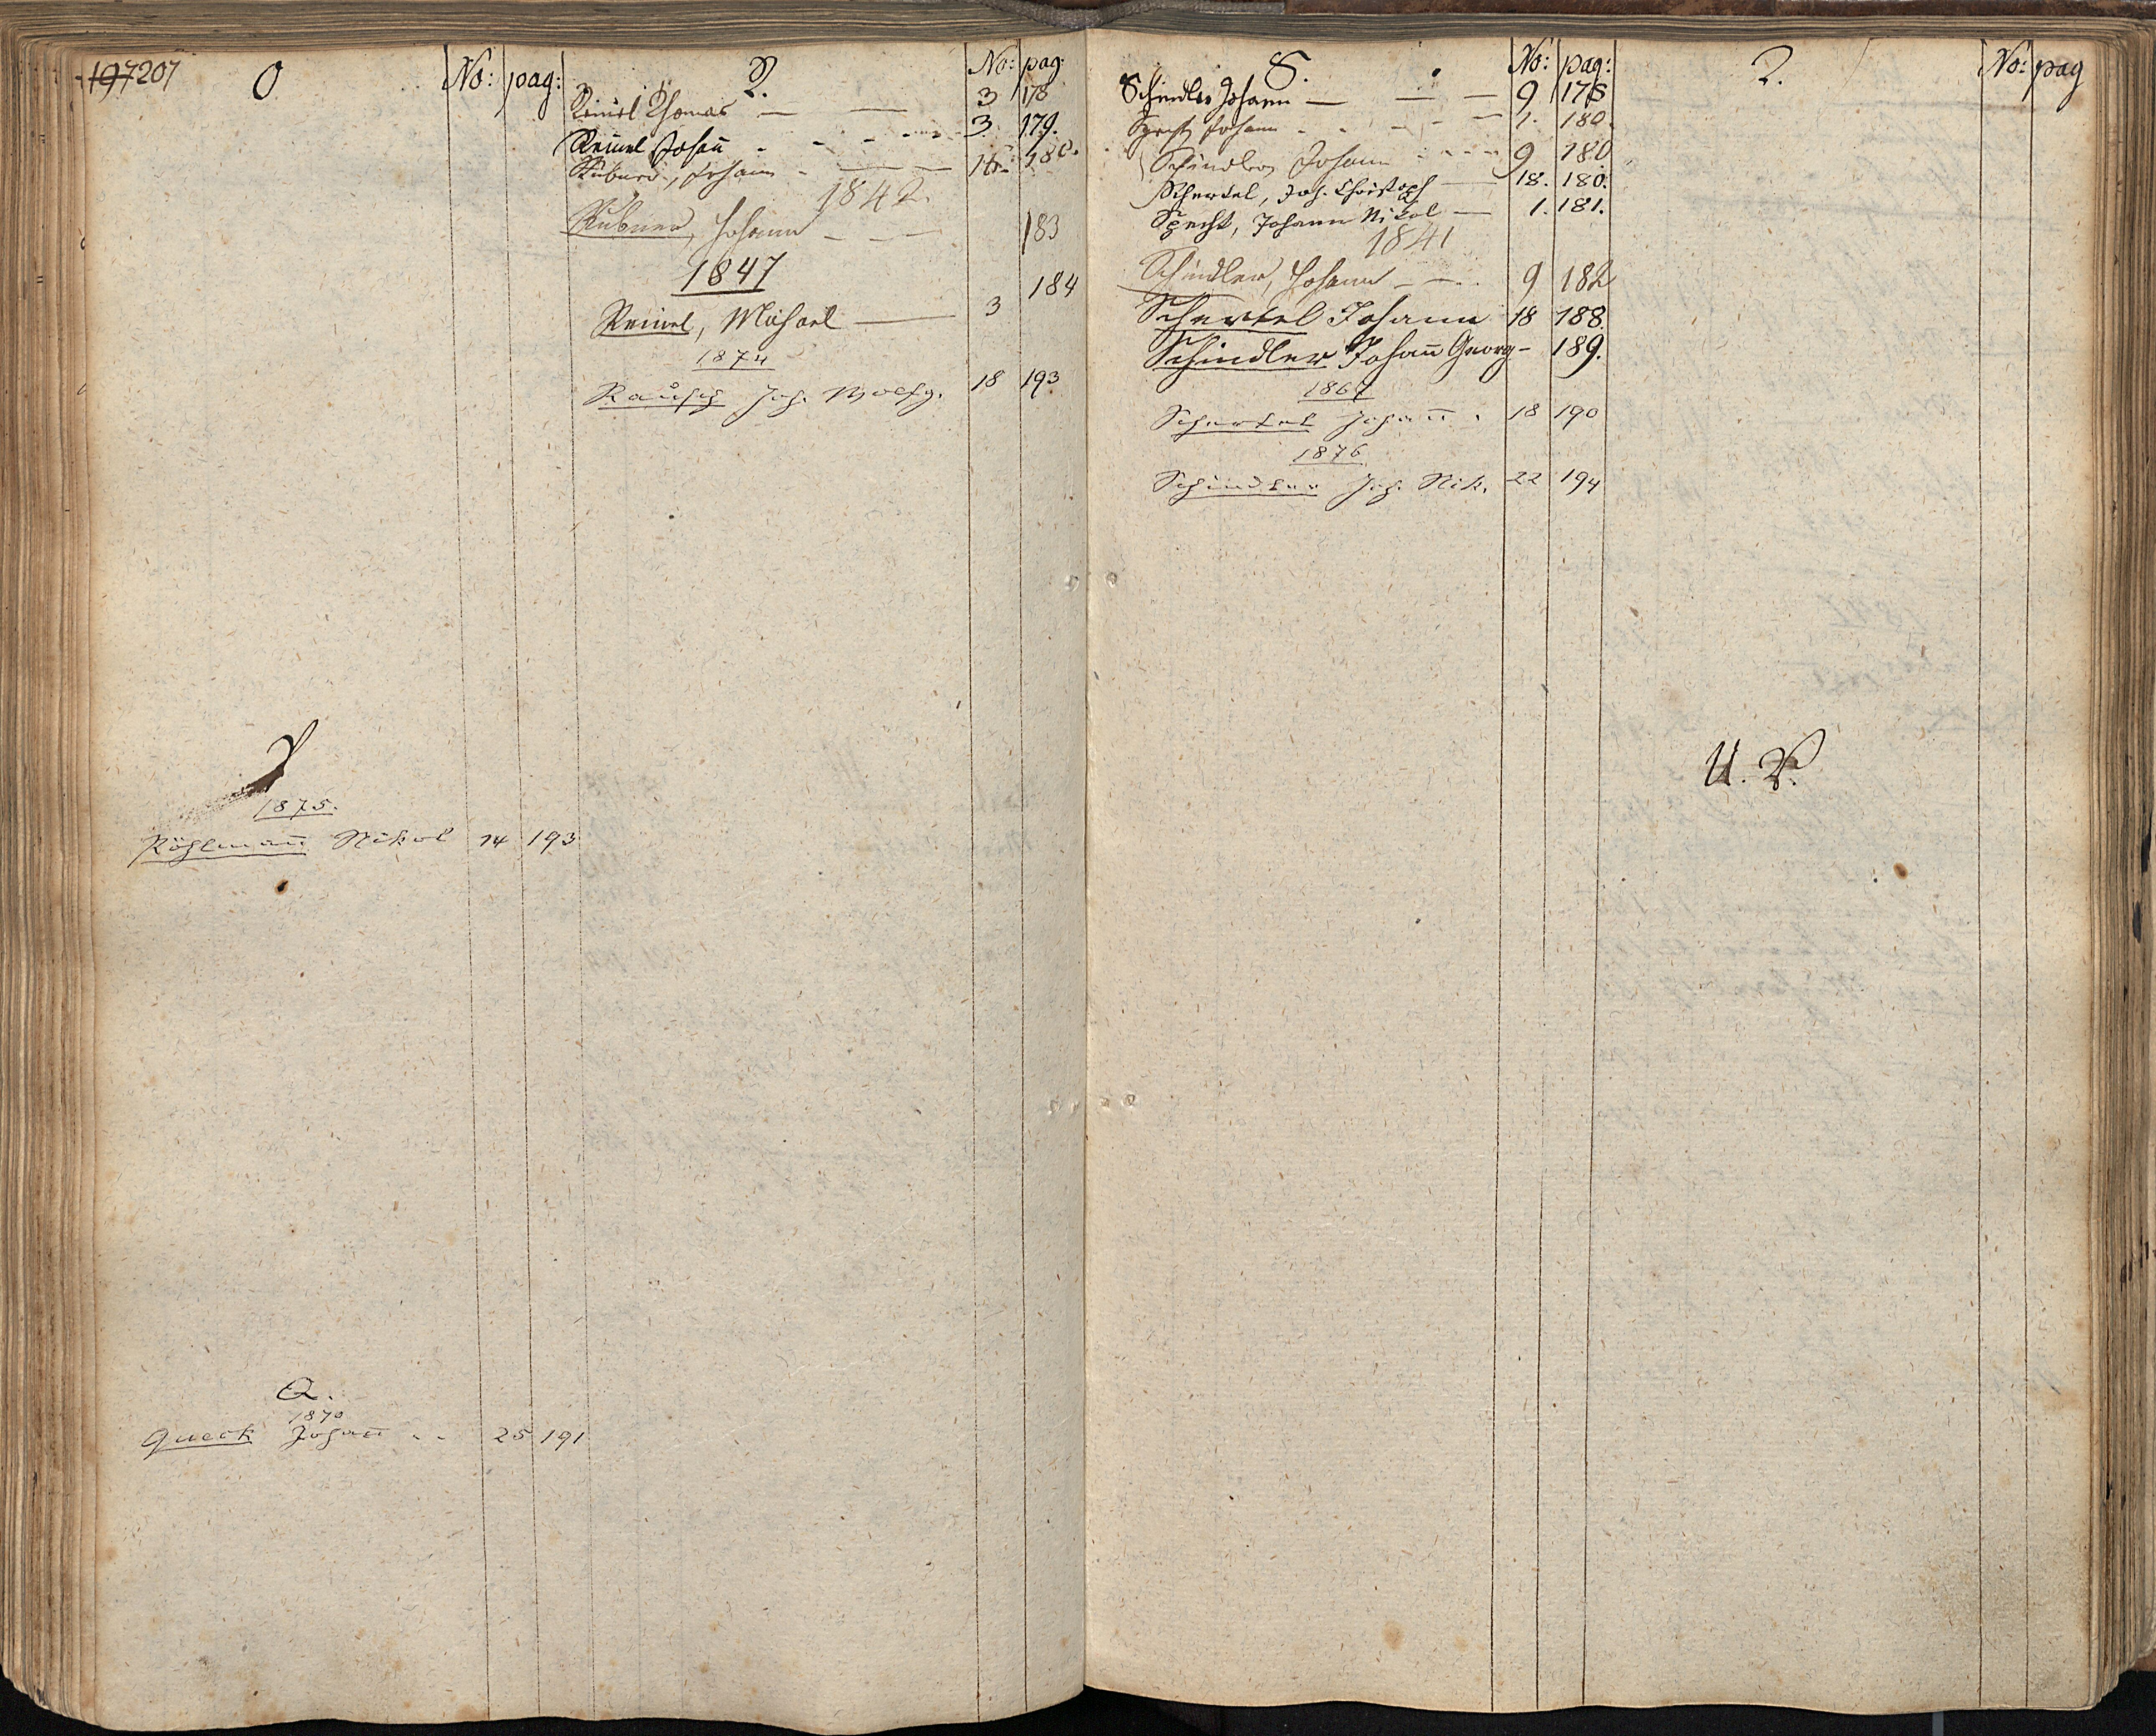 197 207
O
No: pag:
P
1875.
Pöhlmañ Nikol 14 193
Q.
1870
Queck Johañ .. 25 191
R.
No: pag:
Reinel Thomas — — 3 178
Reinel Johañ - - - - 3. 179.
Rubner, Johann - — — 16. 180.
1842.
Rubner, Johann - — — 183
1847
184
Reinel, Michael — 3
1874
Rausch Joh. Wolfg. 18 193
S.
No: pag:
Schindler Johann — — — 9 178
Specht Johann - - - - — 1. 180.
Schindler Johann - - - - 9 180
Schertel, Joh. Christoph — 18. 180.
Specht, Johann Nikol — 1. 181.
1841
Schindler, Johann - — .. 9 182
Schertel Johann 18 188.
Schindler Johañ Georg - 189.
1867
Schertel Johañ . 18 190
1876
Schindler Joh. Nik. 22 194
T.
No: pag
U. V.